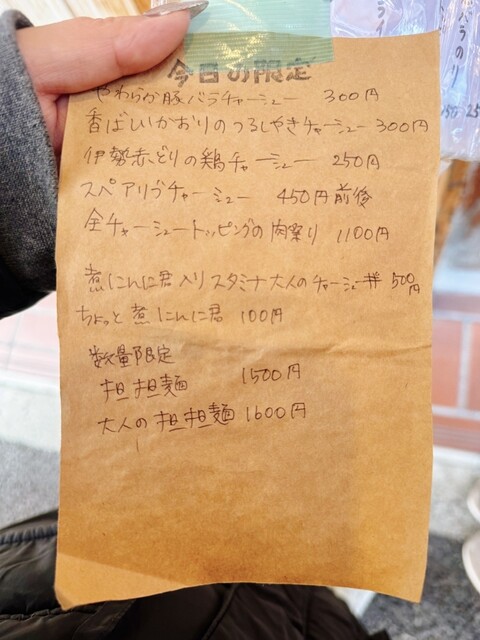 今日の限定
やわらか豚バラチャーシュー 300円
香ばしいかおりのつるしやきチャーシュー 300円
伊勢赤どりの鶏チャーシュー 250円
スペアリブチャーシュー 450円前後
全チャーシュートッピングの肉祭り 1100円
煮にんに君入りスタミナ大人のチャーシュー丼 500円
ちょっと煮にんに君 100円
数量限定
担担麺 1500円
大人の担担麺 1600円
バラのり